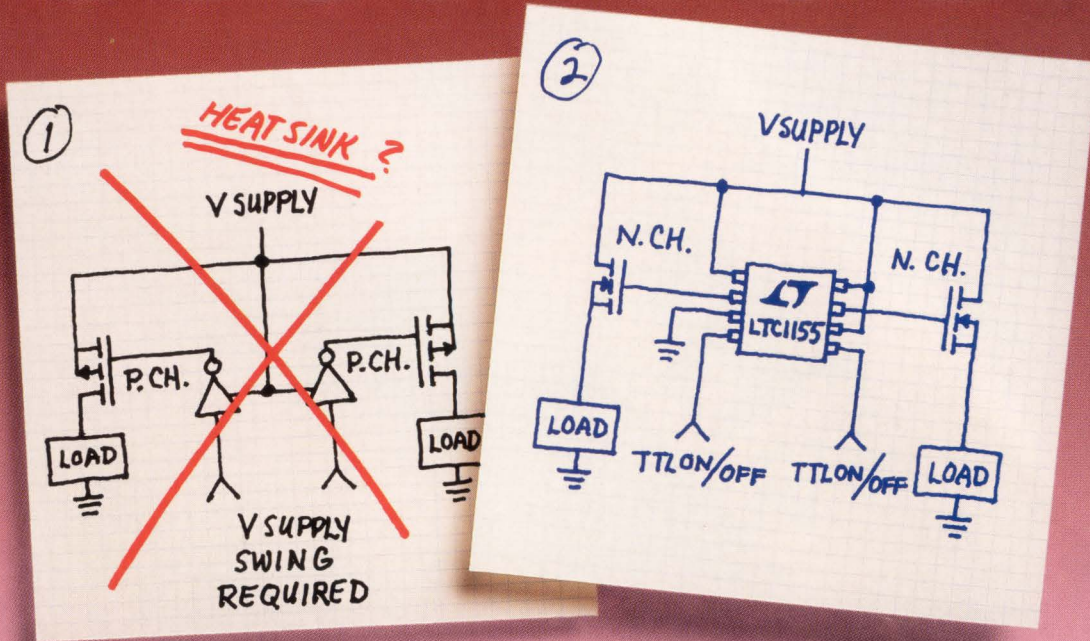 1
HEAT SINK ?
V SUPPLY
P. CH.
P. CH.
LOAD
LOAD
V SUPPLY
SWING
REQUIRED
2
VSUPPLY
N. CH.
N. CH.
LT
LTC1155
LOAD
TTL ON/OFF
TTL ON/OFF
LOAD